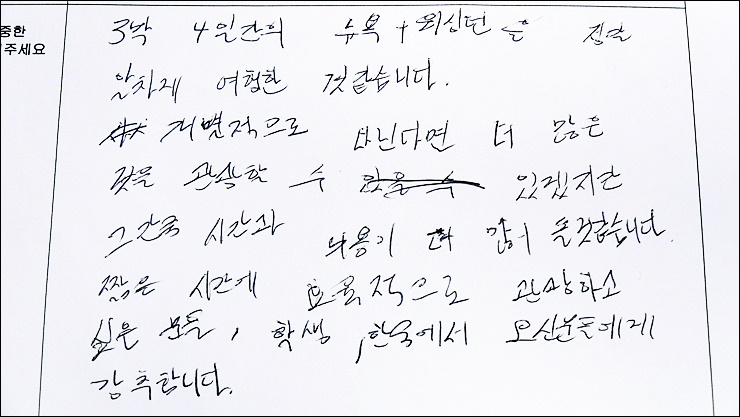 중한
주세요
3박 4일간의 뉴욕 + 워싱턴을 정말
알차게 여행한 것같습니다.
개별적으로 다닌다면 더 많은
것을 관광할 수 있겠지만
그만큼 시간과 비용이 더 많이 들것같습니다.
짧은 시간에 효율적으로 관광하고
싶은 분들, 학생, 한국에서 오신분들에게
강추합니다.